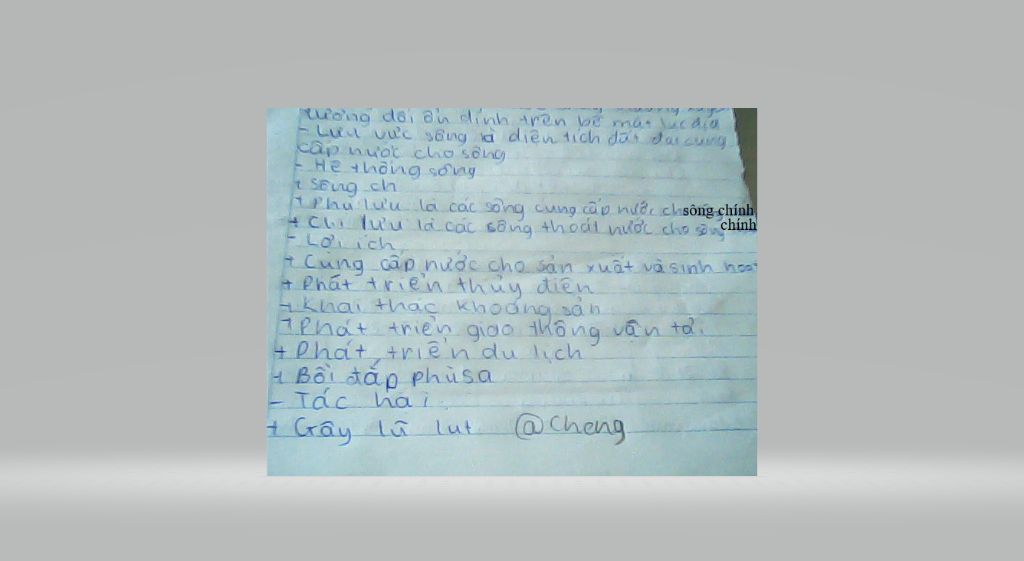 tương đối ổn định trên bề mặt lục địa
- Lưu vực sông là diện tích đất đai cung
cấp nước cho sông
- Hệ thống sông
+ sông ch
+ Phụ lưu là các sông cung cấp nước cho sông chính
+ Chi lưu là các sông thoát nước cho sông chính
- Lợi ích
+ Cung cấp nước cho sản xuất và sinh hoạt
+ Phát triển thủy điện
+ Khai thác khoáng sản
+ Phát triển giao thông vận tải
+ Phát triển du lịch
+ Bồi đắp phù sa
- Tác hại
+ Gây lũ lụt @Cheng